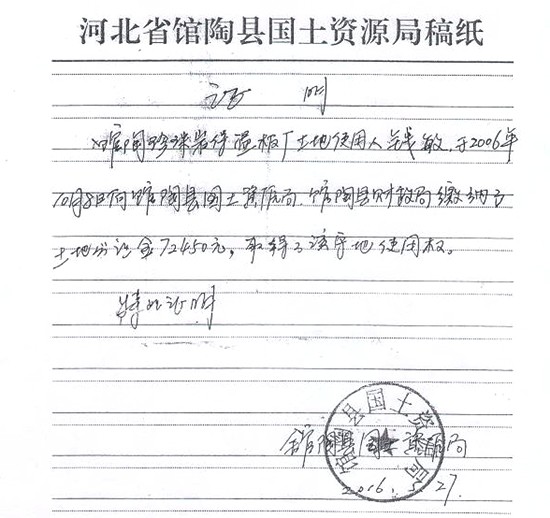 河北省馆陶县国土资源局稿纸
证 明
馆陶珍珠岩保温板厂土地使用人钱敏,于2006年
10月8日向馆陶县国土资源局、馆陶县财政局缴纳了
土地出让金72450元,取得了该宗地使用权。
特此证明
馆陶县国土资源局
馆陶县国土资源局
2016.5.27.